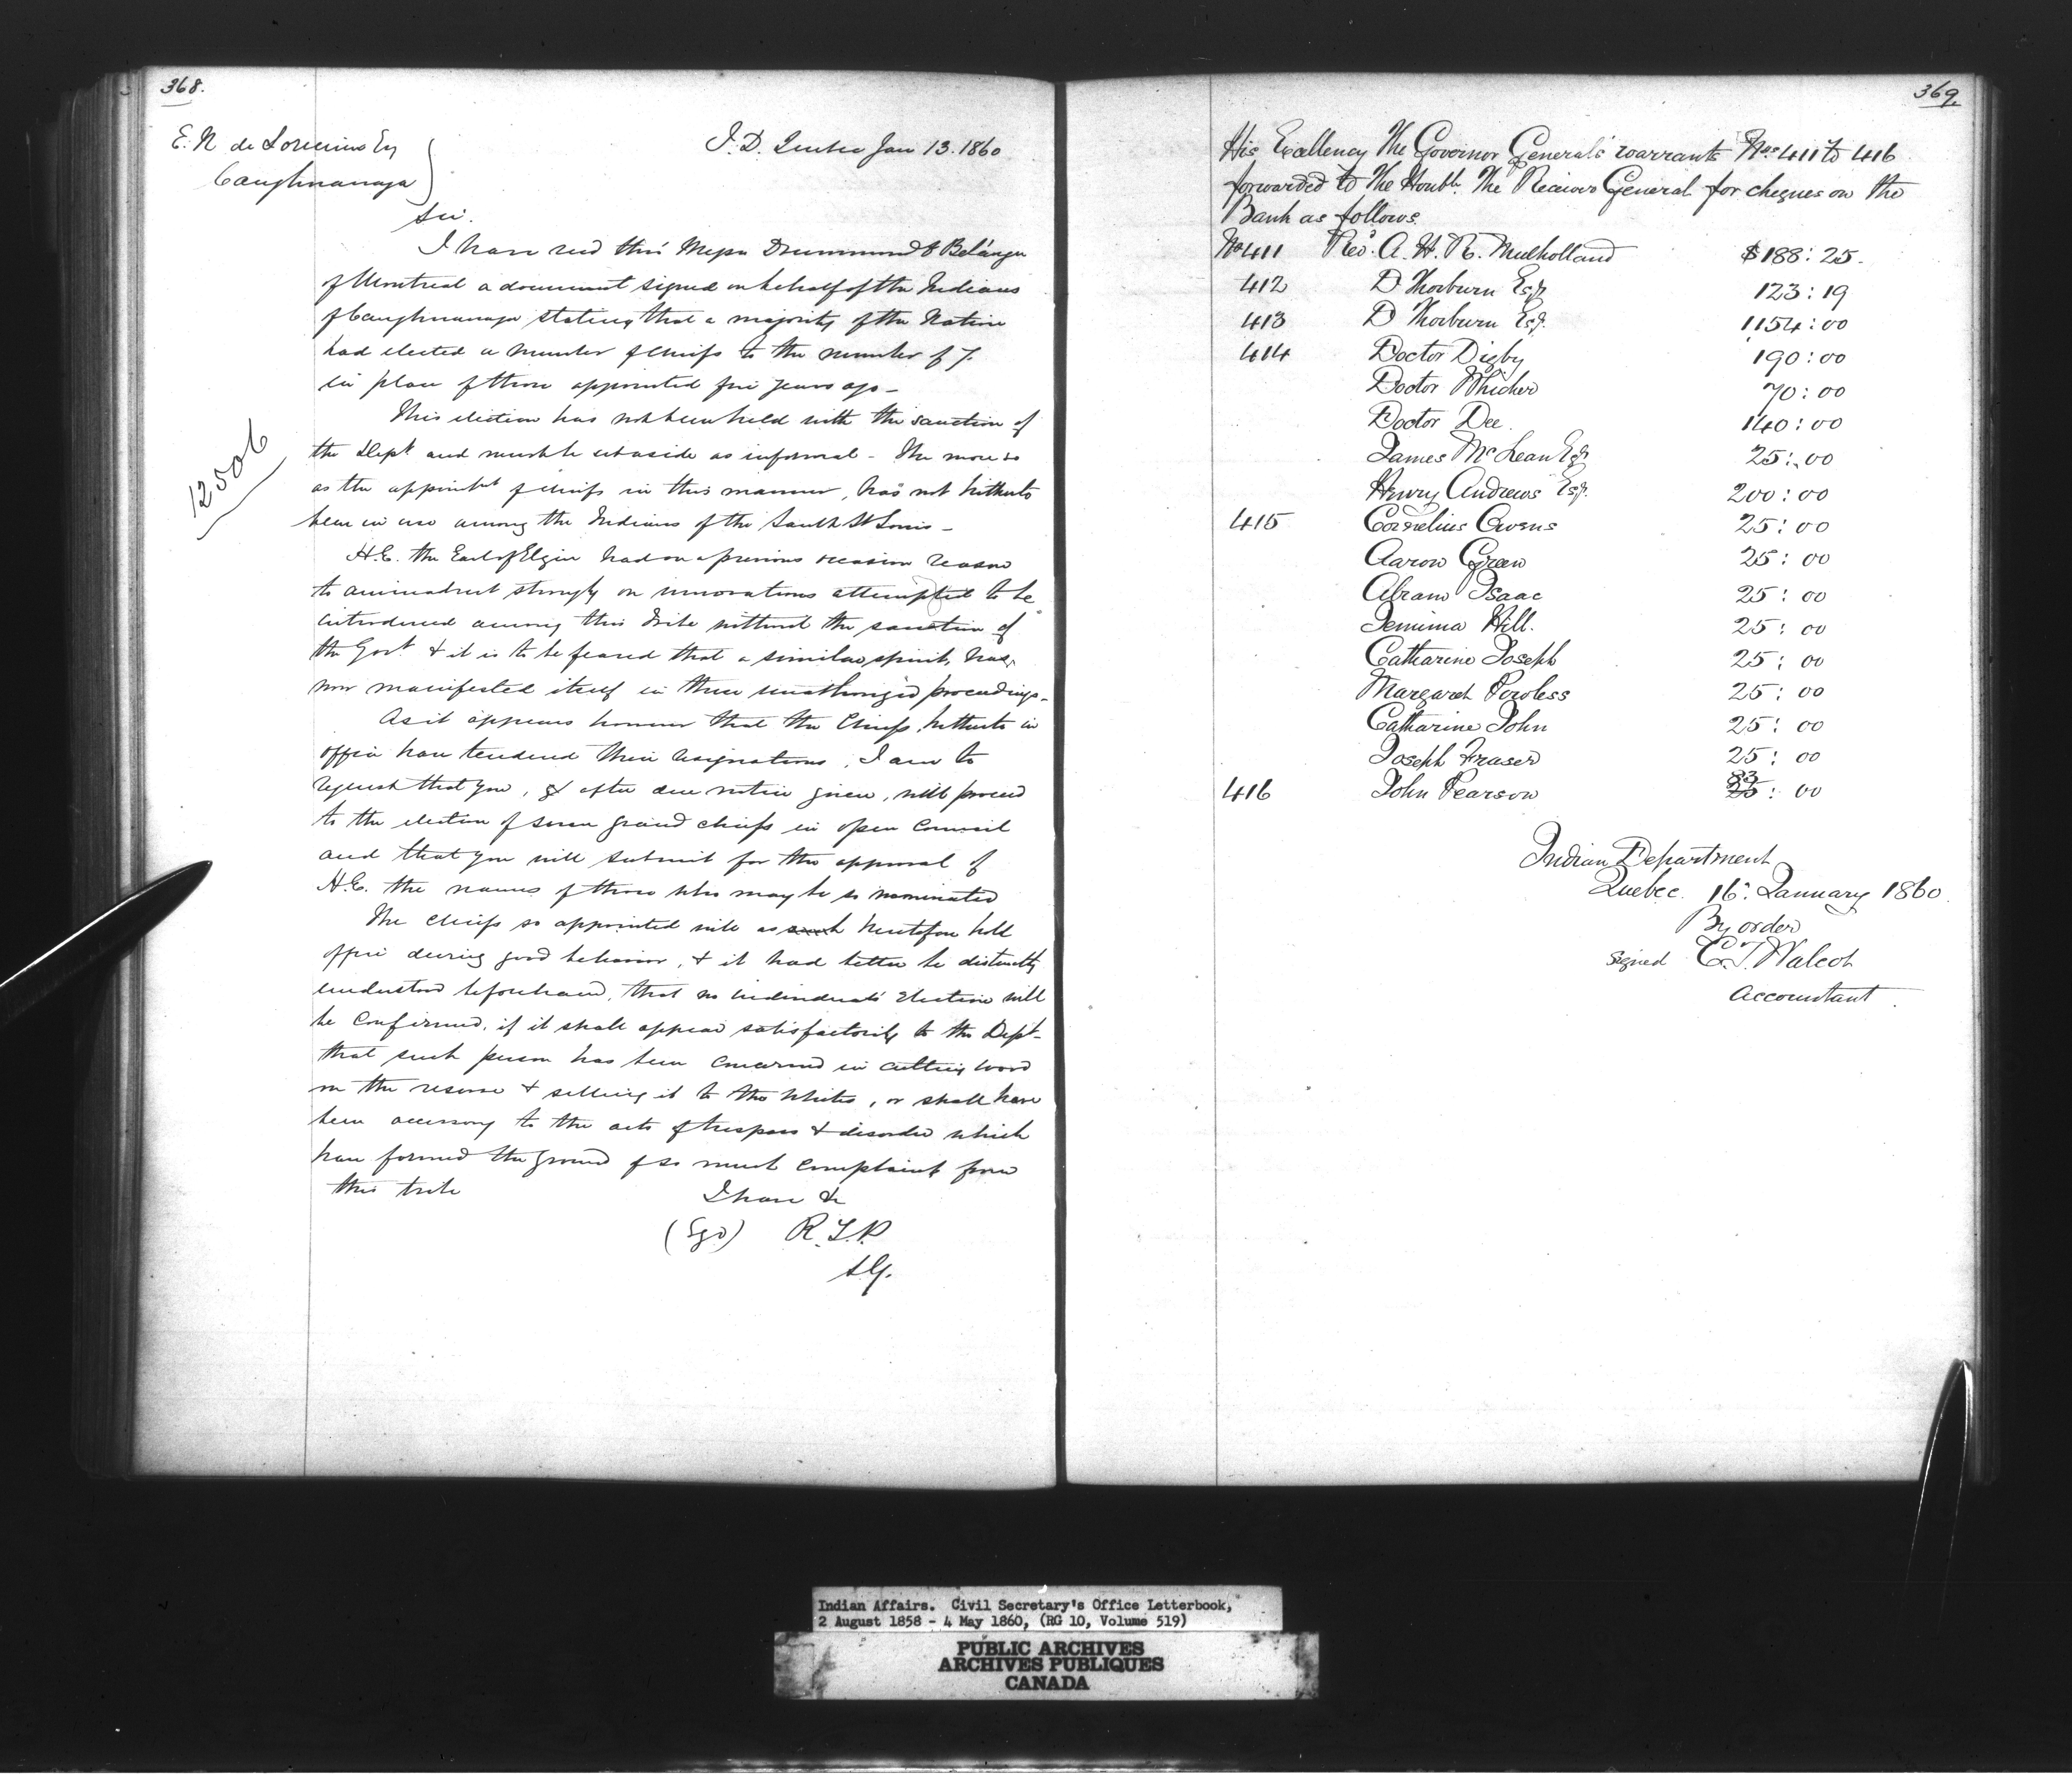 368.
E. N. de Lorimier Esq
Caughnawaga
I. D. Quebec Jan 13. 1860
Sir.
I have recd thro' Messrs Drummond & Belanger
of Montreal a document signed on behalf of the Indians
of Caughnawaga stating that a majority of the Nation
had elected a number of Chiefs to the number of 7.
in place of those appointed five years ago -
This election has not been held with the sanction of
the Dept and must be set aside as informal - The more so
as the appointmt of Chiefs in this manner, has not hitherto
been in use among the Indians of the Sault St Louis -
12506
H.E. the Earl of Elgin had on a previous occasion reason
to animadvert strongly on innovations attempted to be
introduced among this Tribe without the sanction of
the Govt & it is to be feared that a similar spirit, has
now manifested itself in these unauthorized proceedings -
As it appears however that the Chiefs hitherto in
office have tendered their resignations, I am to
request that you, after due notice given, will proceed
to the election of seven grand chiefs in open Council
and that you will submit for the approval of
H.E. the names of those who may be so nominated
The Chiefs so appointed will as such heretofore hold
office during good behavior, & it had better be distinctly
understood beforehand, that no individual's election will
be confirmed, if it shall appear satisfactorily to the Dept -
that such person has been concerned in cutting wood
on the reserve & selling it to the Whites, or shall have
been accessory to the acts of trespass & disorder which
have formed the ground of so much complaint from
this tribe
I have &c
(Sgd) R. T. P.
S.G.
369.
His Excellency The Governor General's warrants Nos 411 to 416
forwarded to The Honble. The Receiver General for cheques on the
Bank as follows
No 411 Revd. A. H. R. Mulholland $188: 25.
412 D Thorburn Esqr 123: 19
413 D Thorburn Esqr. 1154: 00
414 Doctor Digby 190: 00
Doctor Whicher 70: 00
Doctor Dee 140: 00
James McLean Esqr 25: 00
Henry Andrews Esqr. 200: 00
415 Cornelius Owens 25: 00
Aaron Green 25: 00
Abram Isaac 25: 00
Jemima Hill. 25: 00
Catharine Joseph 25: 00
Margaret Powless 25: 00
Catharine John 25: 00
Joseph Fraser 25: 00
416 John Pearson 83: 00
Indian Department
Quebec. 16. January 1860.
By order
Signed C. T. Walcot
Accountant.
Indian Affairs. Civil Secretary's Office Letterbook,
2 August 1858 - 4 May 1860, (RG 10, Volume 519)
PUBLIC ARCHIVES
ARCHIVES PUBLIQUES
CANADA